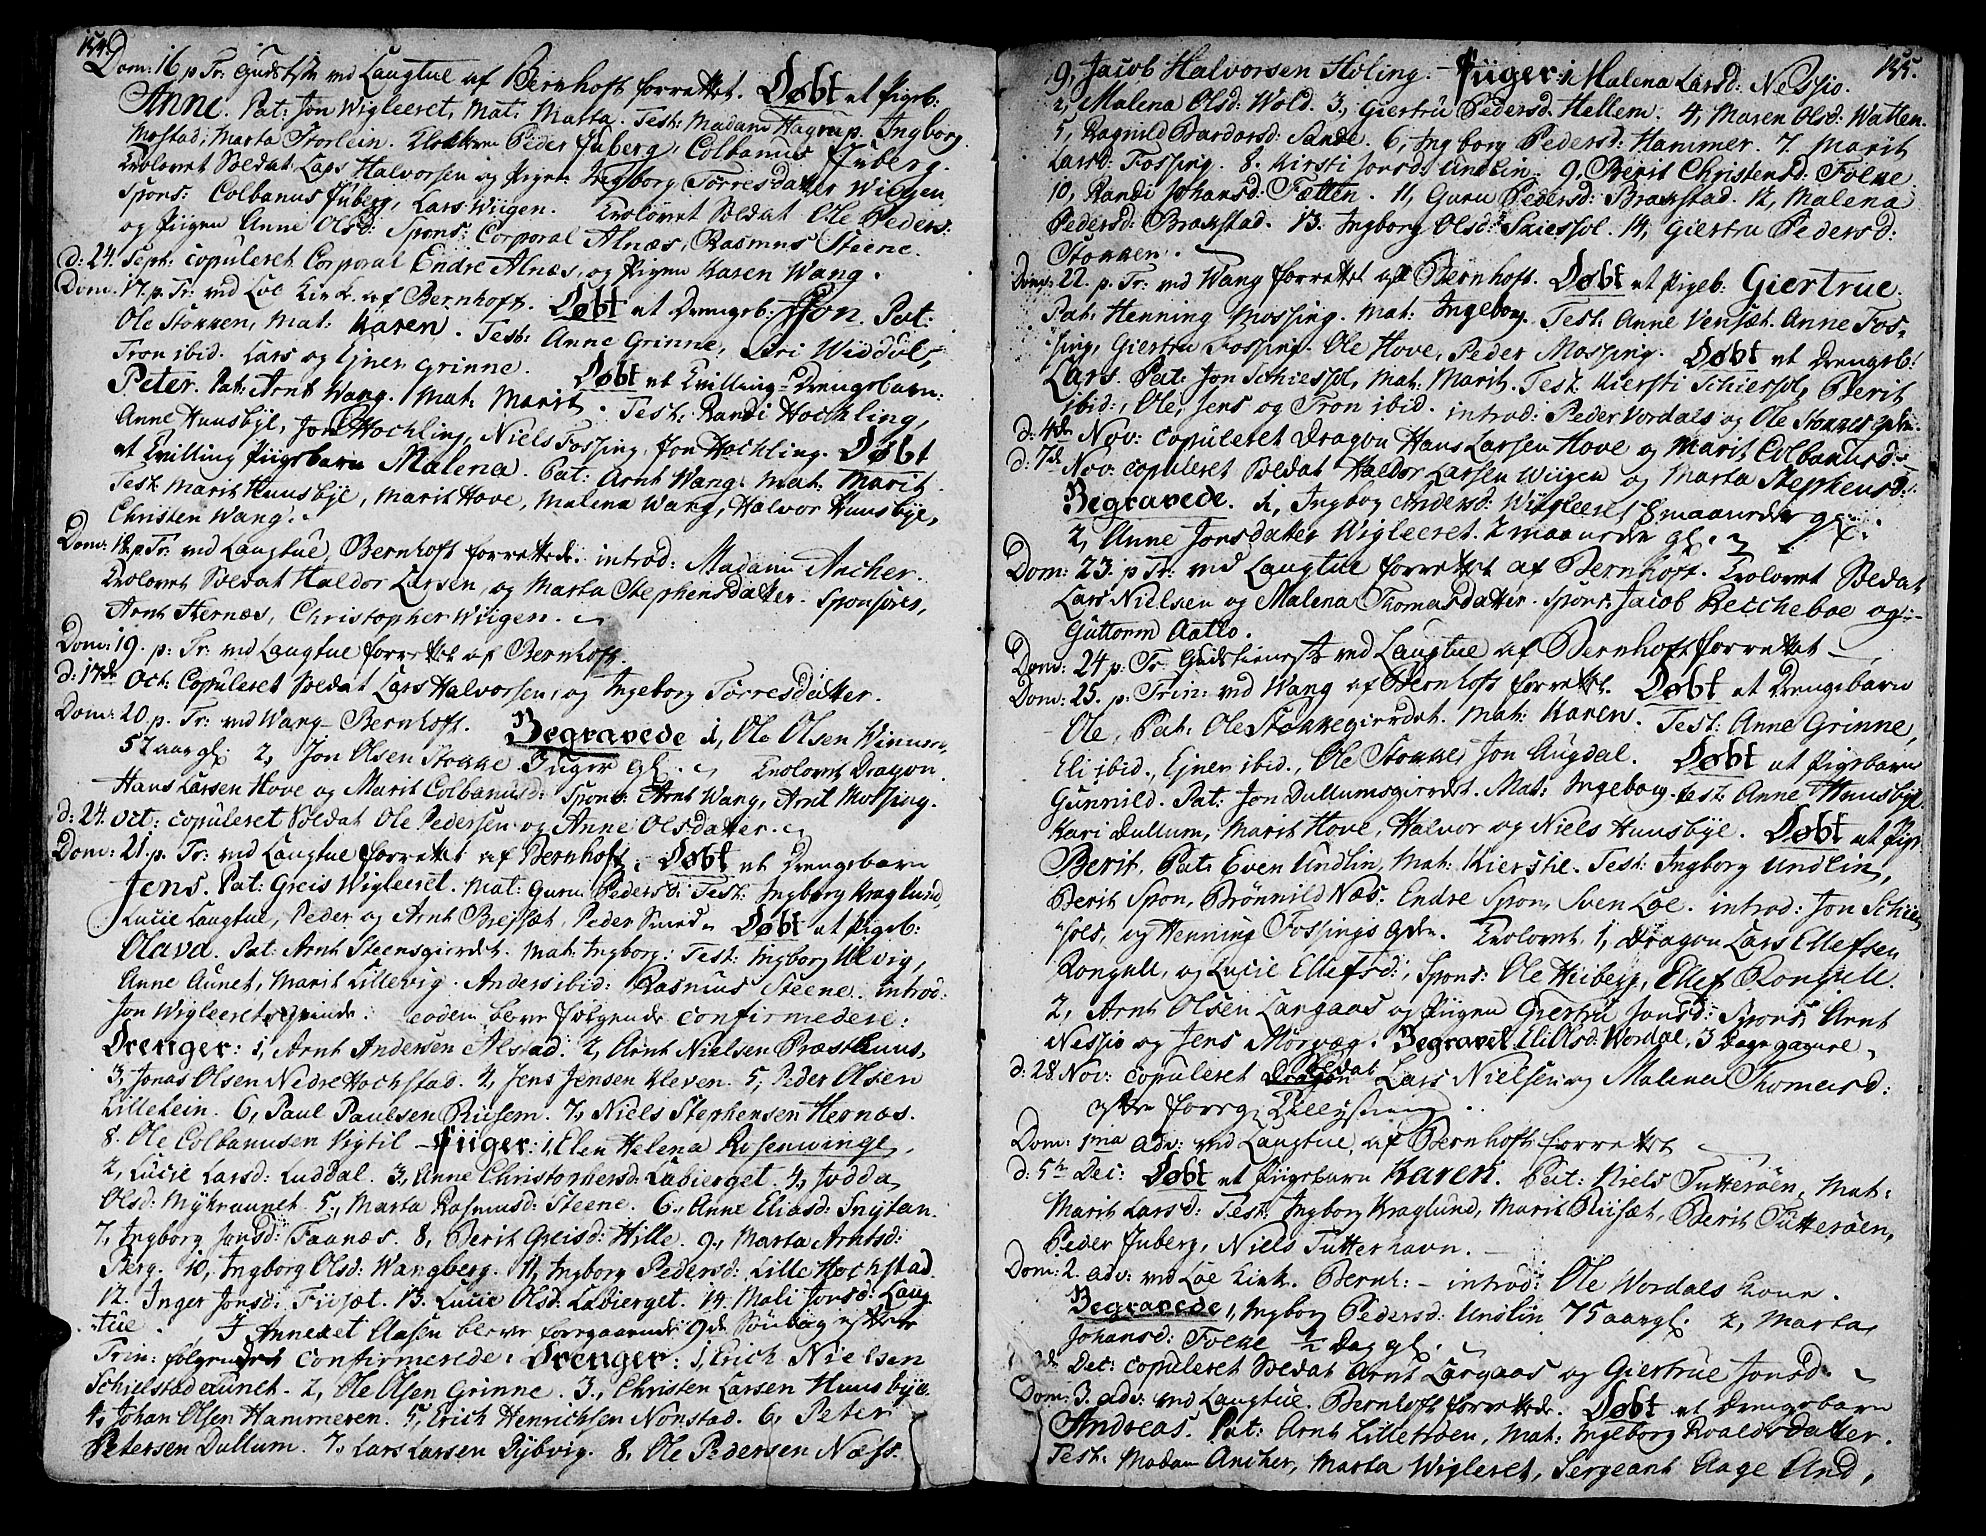 154.
Dom: 16 p Tr: Gudstste ved Laugtue af Bernhoft forrettet. Døbt et Pigeb:
Anne. Pat: Jon Wigleeret, Mat: Marta. Test: Madam Hagrup. Ingborg
Mostad, Marta Storlein. Peder Juberg, Colbanus Juberg.
Trolovet Soldat Lars Halvorsen og Pigen Ingborg Torresdatter Wiigen
Spons: Colbanus Juberg, Lars Wiigen. Trolovet Soldat Ole Peders:
og Piigen Anne Olsd: Spons: Corporal Alnæs, Rasmus Steene.
d: 24. Sept: copuleret Corporal Endre Alnæs, og Pigen Karen Wang.
Dom: 17. p. Tr: ved Loe Kirk. af Bernhoft. Døbt et Drengeb: Jon. Pat:
Ole Stokken, Mat: Karen. Test: Anne Grinne, Siri Widdul,
Tron ibid. Lars og Ejner Grinne. Døbt et Tvilling-Drengebarn:
Peter. Pat: Arnt Wang. Mat: Marit. Test: Randi Hockling,
Anne Huusbye, Jon Hockling, Niels Fossing, Jon Hockling. Døbt
et Tvilling Piigebarn Malena. Pat: Arnt Wang. Mat: Marit.
Test: Marit Huusbye, Marit Hove, Malena Wang, Halvor Huusbye,
Christen Wang.
Dom: 18. p Tr: ved Laugtue, Bernhoft forrettede. introd: Madame Ancher.
Trolovet Soldat Haldor Larsen, og Marta Stephensdatter. Sponsores,
Arnt Hernæs, Christopher Wiigen.
Dom: 19. p: Tr: ved Laugtue forrettet af Bernhoft.
d: 17de Oct: Copuleret Soldat Lars Halvorsen, og Ingeborg Torresdatter.
Dom: 20 p. Tr: ved Wang Bernhoft. Begravede 1, Ole Olsen
57 aar gl: 2, Jon Olsen Stokke 3 uger gl. Trolovet Dragon
Hans Larsen Hove og Marit Colbanusd: Spons: Arnt Wang, Arnt Mossing.
d: 24. oct: copuleret Soldat Ole Pedersen og Anne Olsdatter.
Dom: 21. p. Tr: ved Laugtue forrettet af Bernhoft. Døbt et Drengebarn
Jens. Pat: Greis Wigleeret. Mat: Guru Pedersd: Test: Ingborg Kraglund,
Lucie Laugtue, Peder og Arnt Bressæt, Peder Smed. Døbt et Pigeb:
Olava. Pat: Arnt Steensgierdet. Mat: Ingborg. Test: Ingborg Ulvig,
Anne Aunet, Marit Lillevig. Anders ibid: Rasmus Steene. introd:
Jon Wigleerets qvinde. eodem bleve følgende confirmedere:
Drenger: 1, Arnt Andersen Alstad. 2, Arnt Nielsen Præsthuus,
3, Jonas Olsen Nedre Hockstad. 4, Jens Jensen Kleven. 5, Peder Olsen
Lilleklein. 6, Paul Paulsen Riisem. 7, Niels Stephensen Hernæs.
8. Ole Colbanusen Vigtil – Piiger: 1, Elen Helena Rosenwinge,
2, Lucie Larsd: Luddal. 3, Anne Christophersd: Labierget. 4, Jodda
Olsd: Mykraunet. 5, Marta Rasmusd: Steene. 6, Anne Eliasd: Ingtan.
7, Ingborg Jonsd: Faanæs. 8, Berit Greisd: Hille. 9, Marta Arntsd:
Berg. 10, Ingborg Olsd: Wangberg. 11, Ingborg Pedersd: Lille Hockstad.
12. Inger Jonsd: Fiisæt. 13. Lucie Olsd: Labierget. 14. Mali Jonsd: Laug
tue. I Annexet Aasen bleve forrgaaende 9de Søndag efter
Trin: følgende confirmerede: Drenger: 1, Erich Nielsen
Schielstad aunet. 2, Ole Olsen Grinne. 3, Christen Larsen Huusbye.
4, Johan Olsen Hammeren. 5, Erich Henrichsen Nonstad. 6, Peter
Petersen Dullum. 7, Lars Larsen Dybvig. 8, Ole Pedersen Næss.
155.
9, Jacob Halvorsen Høling. – Piiger: 1 Malena Larsd: Nessio.
2, Malena Olsd: Wold. 3, Giertru Pedersd. Hellem. 4, Maren Olsd: Watten.
5, Ragnild Bardorsd: Sande. 6, Ingborg Pedersd: Hammer. 7. Marit
Larsd: Fossing. 8. Kirsti Jonsd: Undlin. 9, Berit Christensd: Folke.
10, Randi Johansd: Fætten. 11, Guru Pedersd: Brakstad. 12, Malena
Pedersd: Brakstad. 13. Ingborg Olsd: Skiessol. 14, Giertru Pedersd:
Stokken.
Dom: 22. p. Tr: ved Wang forrettet af Bernhoft. Døbt et Pigeb: Giertrue.
Pat: Henning Mossing. Mat: Ingeborg. Test: Anne Verisæt. Anne Fos-
sing, Giertru Fossing. Ole Hove, Peder Mossing. Døbt et Drengeb:
Lars. Pat: Jon Schiessol, Mat: Marit. Test: Kiersti Schiessol, Berit
ibid:, Ole, Jens og Tron ibid. introd: Peder Vordals og Ole Stokkes qvin:
d: 4de Nov: copuleret Dragon Hans Larsen Hove og Marit Colbanusd:
d: 7de Nov: copuleret Soldat Haldor Larsen Wiigen og Marta Stephensd:
Begravede. 1, Ingborg Andersd: Wigleeret 8 maaneder gl:
2, Anne Jonsdatter Wigleeret. 2 maaneder gl.
Dom: 23. p Tr: ved Laugtue forrettet af Bernhoft. Trolovet Soldat
Lars Nielsen og Malena Thomasdatter. Spons: Jacob Reccheboe og
Guttorm Aatlo.
Dom: 24 p. Tr Gudstienste ved Laugtue af Bernhoft forrettet
Dom: 25. p. Trin: ved Wang af Bernhoft forrettet. Døbt et Drengebarn
Ole, Pat: Ole Stokkegierdet. Mat: Karen. Test: Anne Grinne,
Eli ibid., Ejner ibid., Ole Stokke, Jon Augdal. Døbt et Pigebarn
Gunnild. Pat: Jon Dullumsgierdet. Mat: Ingeborg. Test: Anne Huusbye
Kari Dullum, Marit Hove, Halvor og Niels Huusbye. Døbt et Pigb
Berit. Pat: Even Undlin, Mat: Kierstie. Test: Ingborg Undlin,
Berit Spon, Brønnild Næs. Endre Spon, Sven Loe. introd: Jon Schies
sols, og Henning Fossings qvin. Trolovet, 1, Dragon Lars Ellefsen
Ronguli, og Lucie Ellefsd:, Spons: Ole Huberg, Ellef Ronguli.
2, Arnt Olsen Largaas og Piigen Giertru Jonsd: Spons: Arnt
Nessio og Jens Morvæg. Begravet. Eli Olsd: Wordal, 3 dage gamel.
d: 28 Nov: copuleret Dragon Soldat Lars Nielsen og Malena Thomasd:
efter forrg:
Dom: 1ma adv: ved Laugtue af Bernhoft forrettet
d: 5te Dec: Døbt et Piigebarn Karen. Pat: Niels Tutterøen. Mat:
Marit Larsd: Test: Ingborg Kraglund, Marit Riisæt, Berit Tutterøen,
Peder Juberg, Niels Tutterhavn.
Dom: 2. adv: ved Loe Kirk. Bernh: – introd: Ole Wordals kone.
Begravede 1, Ingborg Pedersd: Unslin 75 aar gl. 2, Marta
Johansd: Folke ½ dag gl.
Dec: copuleret Soldat Arnt Largaas og Giertrue Jonsd:
Dom: 3. adv: ved Laugtue. Bernhoft forrettede. Døbt et Drengebarn
Andreas. Pat: Arnt Lilletrøen, Mat: Ingeborg Roaldsdatter.
Test: Madam Ancher, Marta Wigleret, Sergeant Aage And,